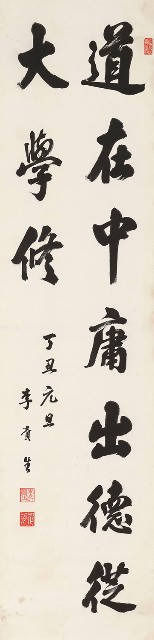 道在中庸出德從
大學修
丁丑元旦
李